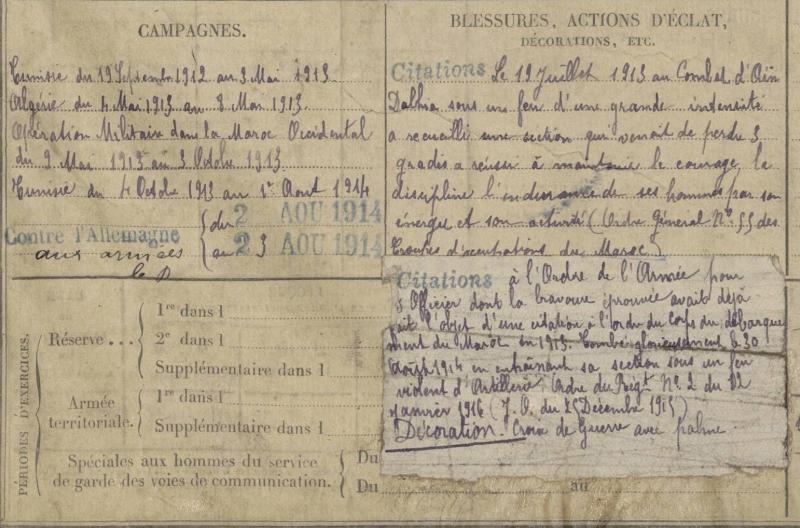 CAMPAGNES.
Tunisie du 19 Septembre 1912 au 3 Mai 1913
Algérie du 4 Mai 1913 au 8 Mai 1913.
Opération Militaire dans la Maroc Occidental
du 9 Mai 1913 au 3 Octobre 1913
Tunisie du 4 Octobre 1913 au 1er Aout 1914
Contre l'Allemagne
aux armées
du 2 AOU 1914
au 23 AOU 1914
BLESSURES, ACTIONS D'ÉCLAT,
DÉCORATIONS, ETC.
Citations Le 19 Juillet 1913 au Combat d'Aïn
sous un feu d'une grande intensité
a recueilli une section qui venait de perdre 3
gradés a réussi à maintenir le courage, la
discipline l'endurance de ses hommes par son
énergie et son activité (Ordre Général N° 55 des
Troupes d'occupations du Maroc)
Citations à l'Ordre de l'Armée pour
s Officier dont la bravoure éprouvée avait déjà
fait l'objet d'une citation à l'ordre du corps du débarque
ment du Maroc en 1913. Tombé glorieusement le 30
Août 1914 en entraînant sa section sous un feu
violent d'Artillerie, Ordre du Régt N° 2 du 12
Janvier 1916 (J. O. du 25 Décembre 1915)
Décoration. Croix de Guerre avec palme.
PÉRIODES D'EXERCICES.
Réserve . . .
1re dans l
2e dans l
Supplémentaire dans l
Armée
territoriale.
1re dans l
Supplémentaire dans l
Spéciales aux hommes du service
de garde des voies de communication.
Du
Du au